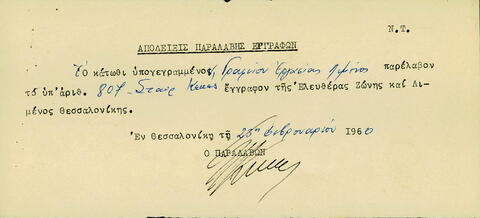 Ν.Τ.
ΑΠΟΔΕΙΞΙΣ ΠΑΡΑΛΑΒΗΣ ΕΓΓΡΑΦΩΝ
Ὁ κάτωθι ὑπογεγραμμένος Γραφεῖον Ἐργασίας Λιμένος παρέλαβον
τό ὑπ'ἀριθ. 807 ἔγγραφον τῆς Ἐλευθέρας Ζώνης καί Λι-
μένος Θεσσαλονίκης.
Ἐν Θεσσαλονίκῃ τῇ 25η Φεβρουαρίου 1960
Ο ΠΑΡΑΛΑΒΩΝ